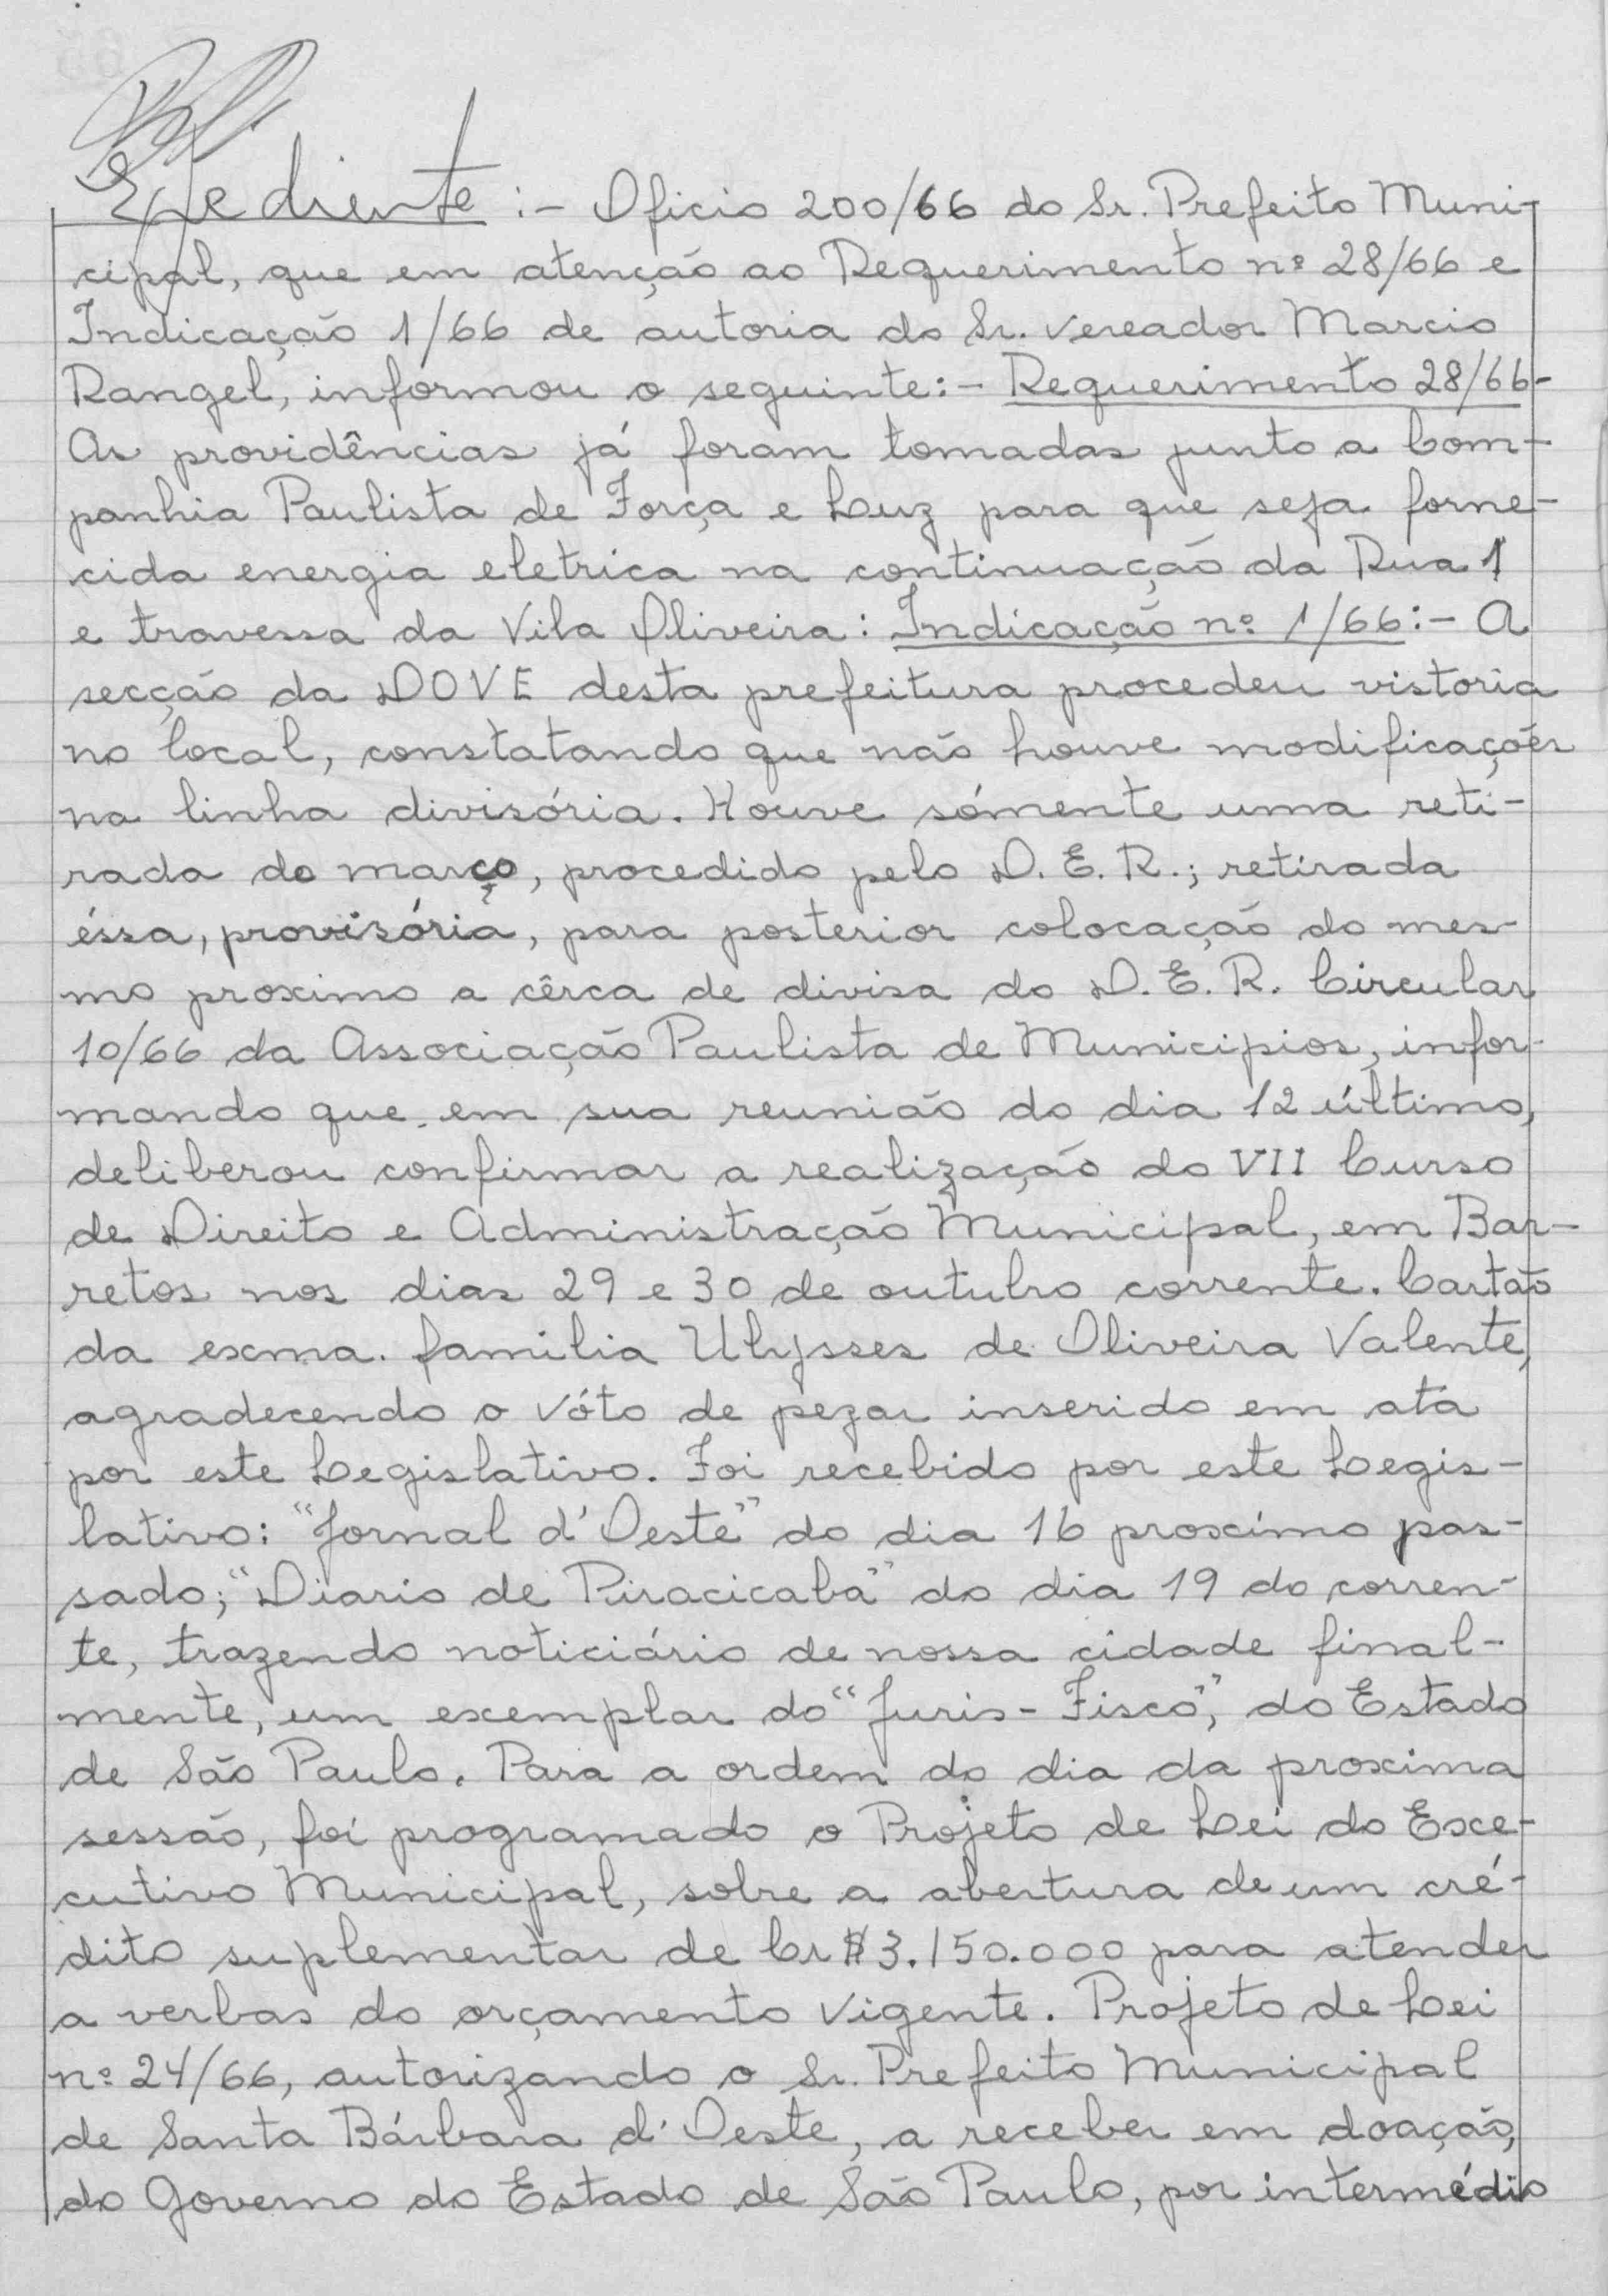 Expediente :- Oficio 200/66 do Sr. Prefeito Muni-
cipal, que em atenção ao Requerimento nº 28/66 e
Indicação 1/66 de autoria do Sr. vereador Marcio
Rangel, informou o seguinte:- Requerimento 28/66-
As providências já foram tomadas junto a Com-
panhia Paulista de Força e Luz para que seja forne-
cida energia eletrica na continuação da Rua 1
e travessa da Vila Oliveira: Indicação nº 1/66:- A
secção da DOVE desta prefeitura procedeu vistoria
no local, constatando que não houve modificações
na linha divisória. Houve sómente uma reti-
rada do março, procedido pelo D.E.R.; retirada
éssa, provisória, para posterior colocação do mes-
mo proximo a cêrca de divisa do D.E.R. Circular
10/66 da Associação Paulista de Municipios, infor-
mando que em sua reunião do dia 12 último,
deliberou confirmar a realização do VII Curso
de Direito e Administração Municipal, em Bar-
retos nos dias 29 e 30 de outubro corrente. Cartão
da exma. familia Ulysses de Oliveira Valente,
agradecendo o vóto de pezar inserido em ata
por este Legislativo. Foi recebido por este Legis-
lativo: "Jornal d'Oeste" do dia 16 proximo pas-
sado; "Diario de Piracicaba" do dia 19 do corren-
te, trazendo noticiário de nossa cidade final-
mente, um exemplar do "Juris-Fisco", do Estado
de São Paulo. Para a ordem do dia da proxima
sessão, foi programado o Projeto de Lei do Exe-
cutivo Municipal, sobre a abertura de um cré-
dito suplementar de Cr$3.150.000 para atender
a verbas do orçamento vigente. Projeto de Lei
nº 24/66, autorizando o Sr. Prefeito Municipal
de Santa Bárbara d'Oeste, a receber em doação,
do Governo do Estado de São Paulo, por intermédio